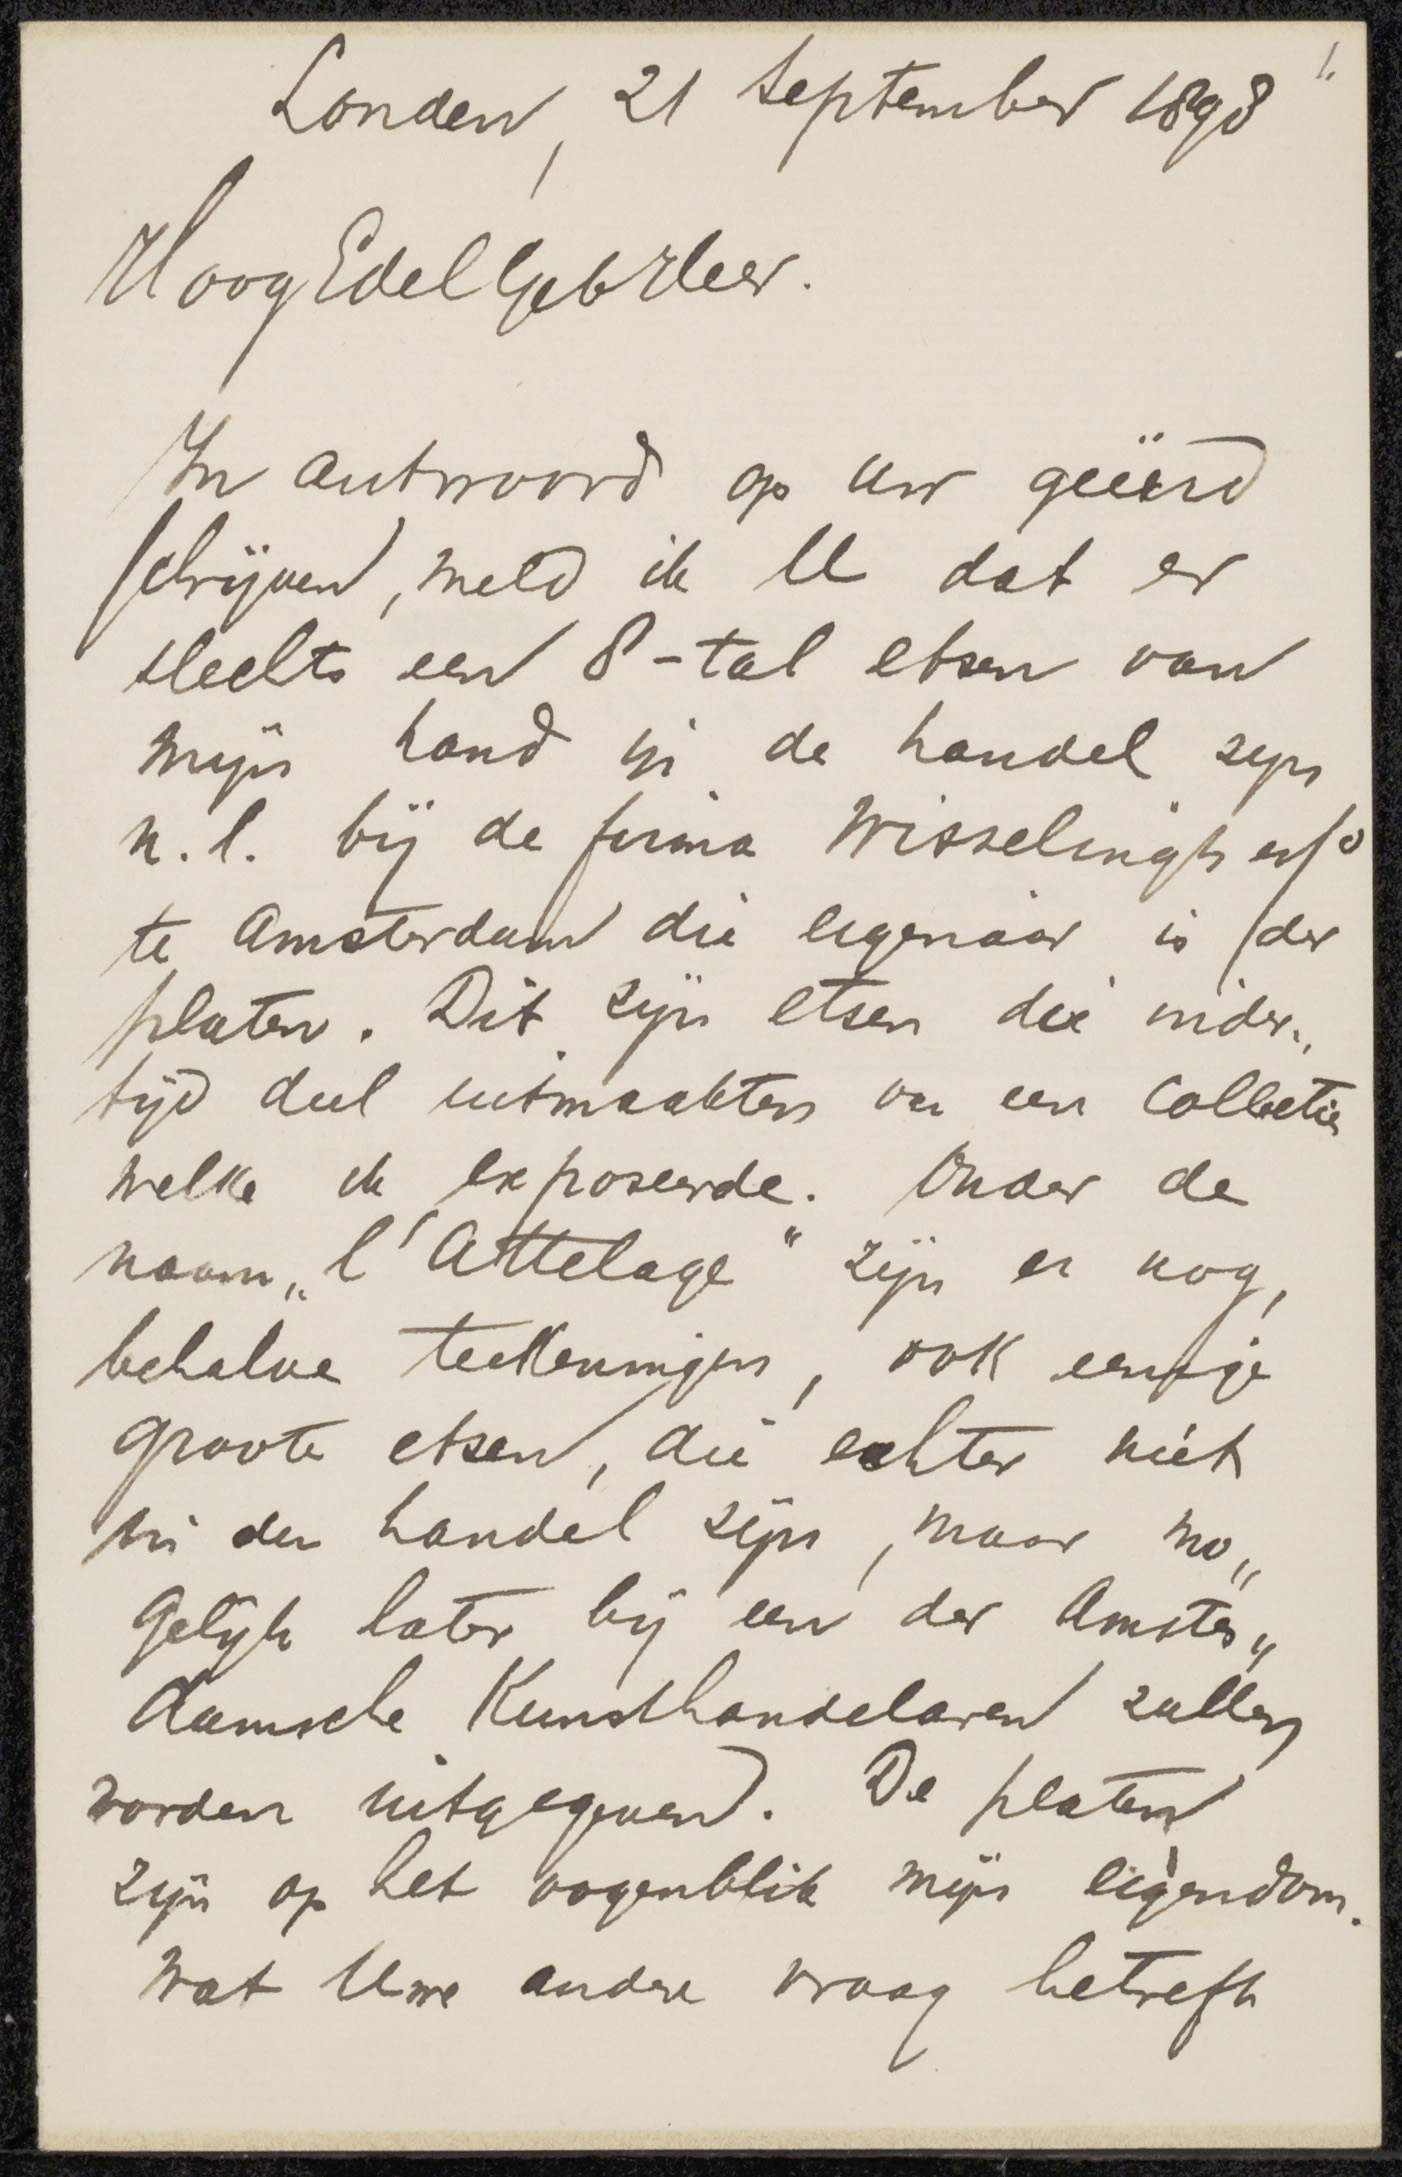 1.
Londen, 21 September 1898
HoogEdelGeb Heer.
In antwoord op uw geëerd
schrijven, meld ik U dat er
slechts een 8-tal etsen van
mijn hand in de handel zijn
n.l. bij de firma Wisselingh en Co
te Amsterdam die eigenaar is der
platen. Dit zijn etsen die inder„
tijd deel uitmaakten van een collectie
welke ik exposeerde. Onder de
naam „l'Attelage" zijn er nog,
behalve teekeningen, ook eenige
groote etsen, die echter niet
in den handel zijn, maar mo„
gelijk later bij een der Amster„
damsche Kunsthandelaren zullen
worden uitgegeven. De platen
zijn op het oogenblik mijn eigendom.
Wat Uwe andere vraag betreft